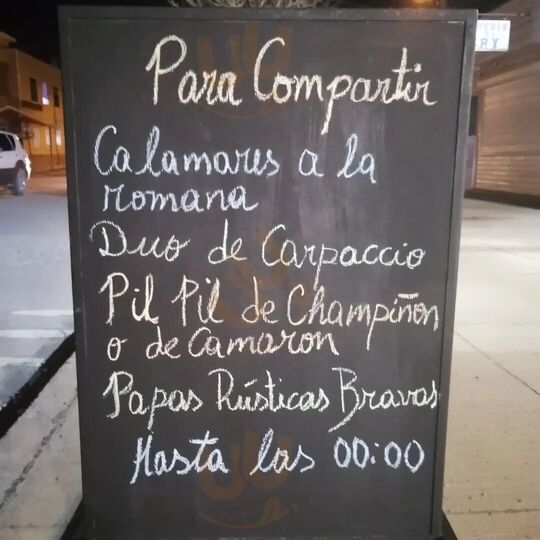 Para Compartir
Calamares a la
romana
Duo de Carpaccio
Pil Pil de Champiñon
o de Camaron
Papas Rústicas Bravas
Hasta las 00:00